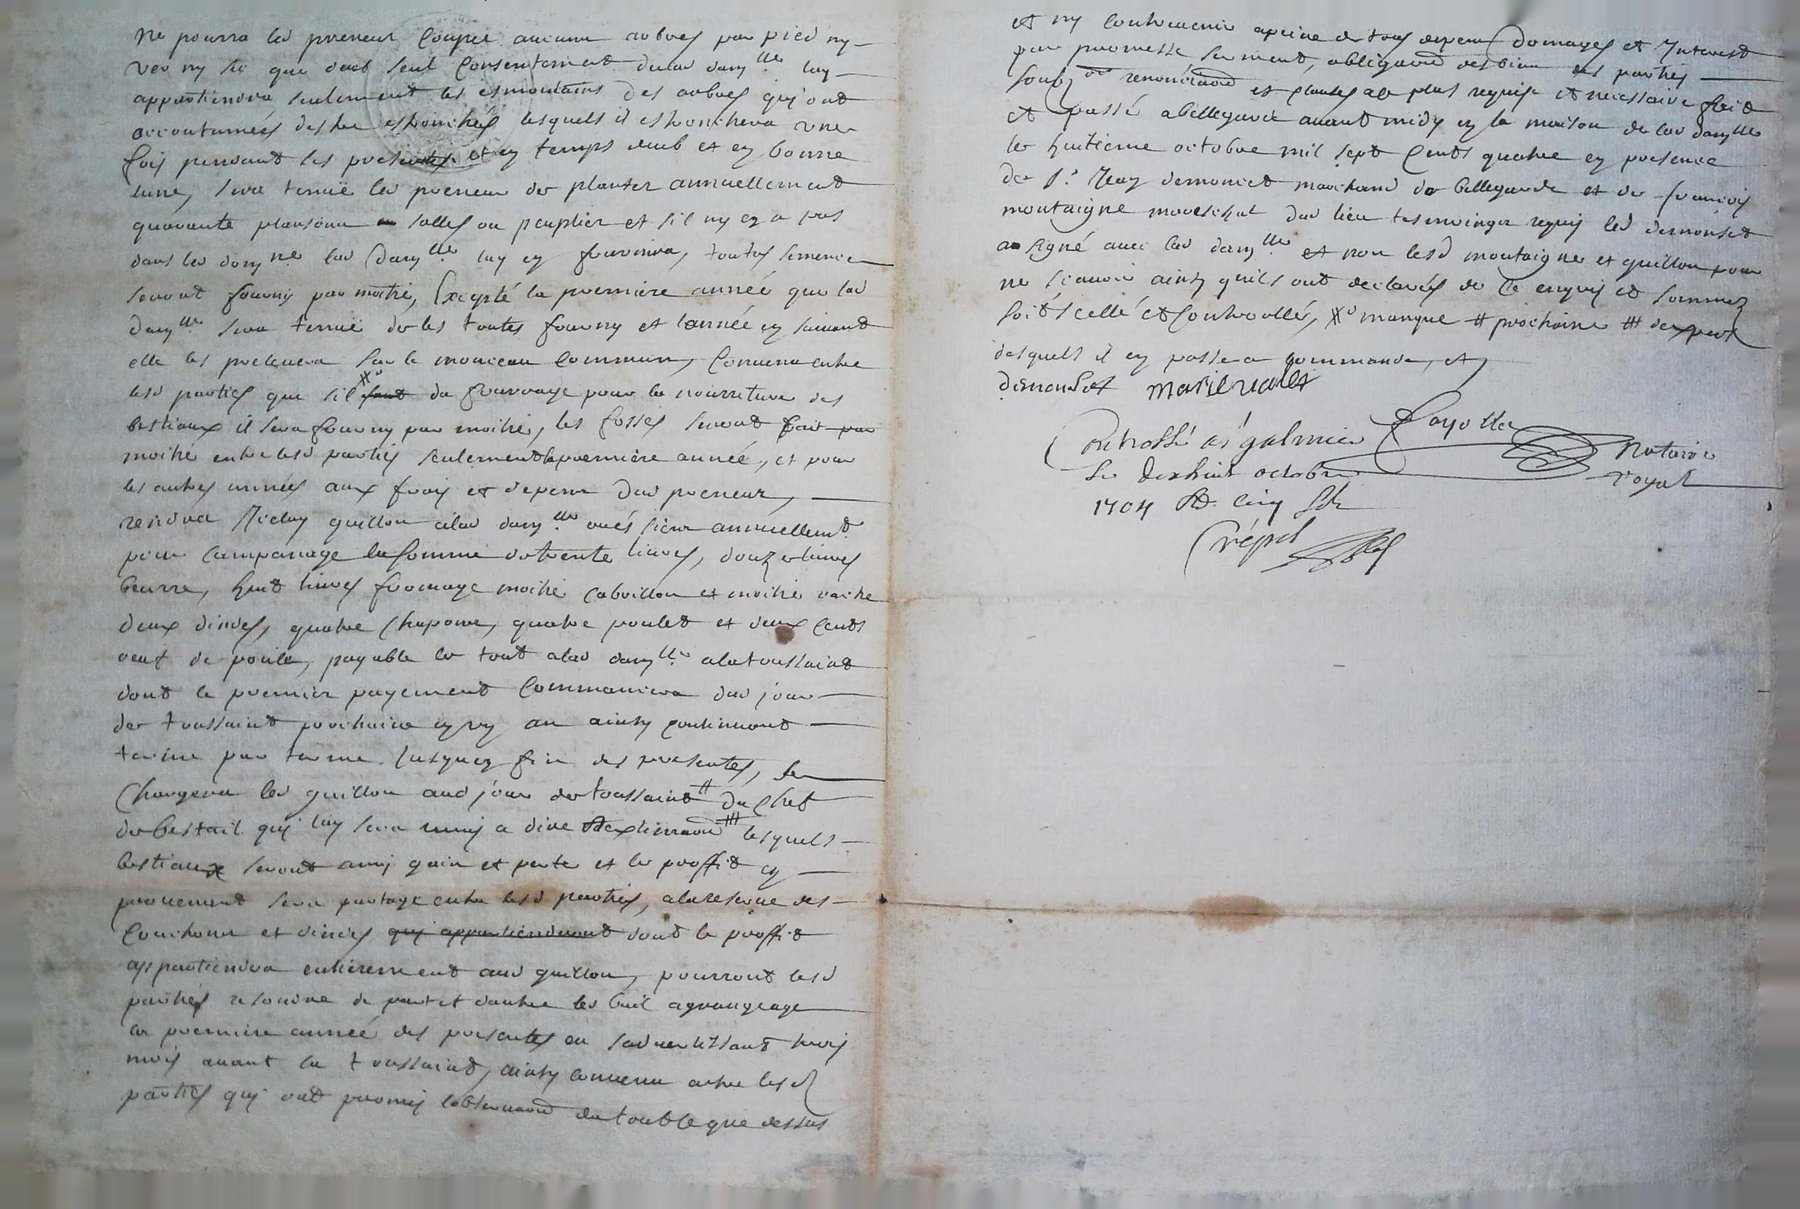 ne pourra led preneur couper aucuns arbres par pied ny
vev ny sec que du seul consentement de lad damlle luy
appartiendra seulement les esmontains des arbres qui ont
accoutumés destre esbranchés lesquels il esbranchera une
fois pendant les presentes et en temps deub et en bonne
lune, sera tenuë led preneur de planter annuellement
quarante plansons salles ou peuplier et s'il ny en a pas
dans led domne lad damlle luy en fournira, toutes semence
seront fourny par moitié, Excepté la premiere année que lad
damlle sera tenuë de les toutes fourny et l'année en suivant
elle les prelevera sur le monceau commun, Convenu entre
lesd parties que s'il faut du fourrage pour la nourriture des
bestiaux il sera fourny par moitié, les fossés seront fait par
moitié entre lesd parties seulement la premiere année, et pour
les autres années aux frais et depens dud preneur,
rendra guillon a lad damlle annuellemt
pour campanage la somme de trente livres, douze livres
beurre, huit livres fromage moitié cabrillon et moitié vache
deux dindes, quatre chapons, quatre poulet et deux cents
oeuf de poule, payable le tout a lad damlle a la toussaint
dont le premier payement commancera dud jour
de toussaint prochaine en un an ainsy continuant
terme par terme jusques fin des presentes, se
chargera led guillon aud jour de toussaint # du chef
de bestail qui luy sera remis a dire d'extimaon ### lesquels
bestiaux seront amy gain et perte et le proffit en
provenant sera partagé entre lesd parties, a la reserve des
couchons et dindes qui appartiendront dont le proffit
appartiendra entierement aud guillon, pourront lesd
parties resoudre de part et dautre led bail a grangeage
la premiere année des presentes en sadvertissant trois
mois avant la toussaint, ainsy convenu entre lesd
parties qui ont promis l'observaon du tout ce que dessus
et ny contrevenir a peine de tous depens domages et Interest
par promesse serment, obligaon des biens des parties
soubz renonciaon et clauses au plus requise et necessaire fait
et passé a bellegarde avant midy en la maison de lad damlle
le huitieme octobre mil sept cents quatre en presence
de sr Jean demoncet marchand de bellegarde et de francois
montaigne mareschal dud lieu tesmoings requis led demonset
a signé avec lad damlle et non lesd montaigne et guillon pour
ne scavoir ainsy quils ont declarés de ce enquis et sommez
soit scellé et controollé, manque # prochaine ###
desquels il en passera commande, et
Demonset marie
Controllé a st galmier Payolle
Le dix huit octobre Notaire
1704 Rd. cinq sols royal
Crépet